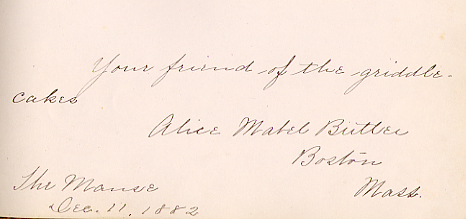 Your friend of the griddle-
cakes
Alice Mabel Butler
Boston
Mass.
The Manse
Dec. 11, 1882